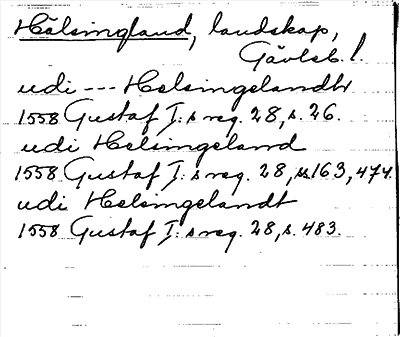 Hälsingland, landskap,
Gävleb. l.
udi --- Helsingelandtr
1558 Gustaf I:s reg. 28, s. 26.
udi Helsingeland
1558 Gustaf I:s reg. 28, ss. 163, 474.
udi Helsingelandt
1558 Gustaf I:s reg. 28, s. 483.